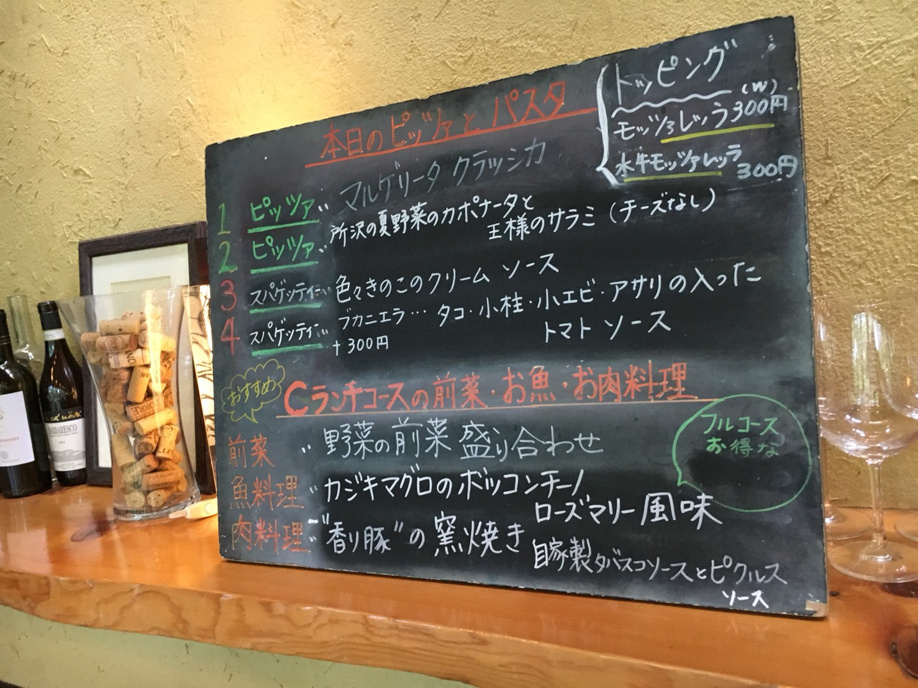 本日のピッツァと パスタ
トッピング
(W)
モッツァレッラ 300円
水牛モッツァレッラ
300円
1 ピッツァ… マルゲリータ クラッシカ
2 ピッツァ… 所沢の夏野菜のカポナータと
王様のサラミ (チーズなし)
3 スパゲッティ… 色々きのこのクリーム ソース
4 スパゲッティ… ブカニエラ… タコ・小柱・小エビ・アサリの入った
+300円
トマト ソース
おすすめ
Cランチコースの前菜・お魚・お肉料理
フルコース
お得な
前菜 … 野菜の前菜 盛り合わせ
魚料理… カジキマグロのボッコンチーノ
ローズマリー風味
肉料理… "香り豚"の窯焼き
自家製タバスコソースとピクルス
ソース